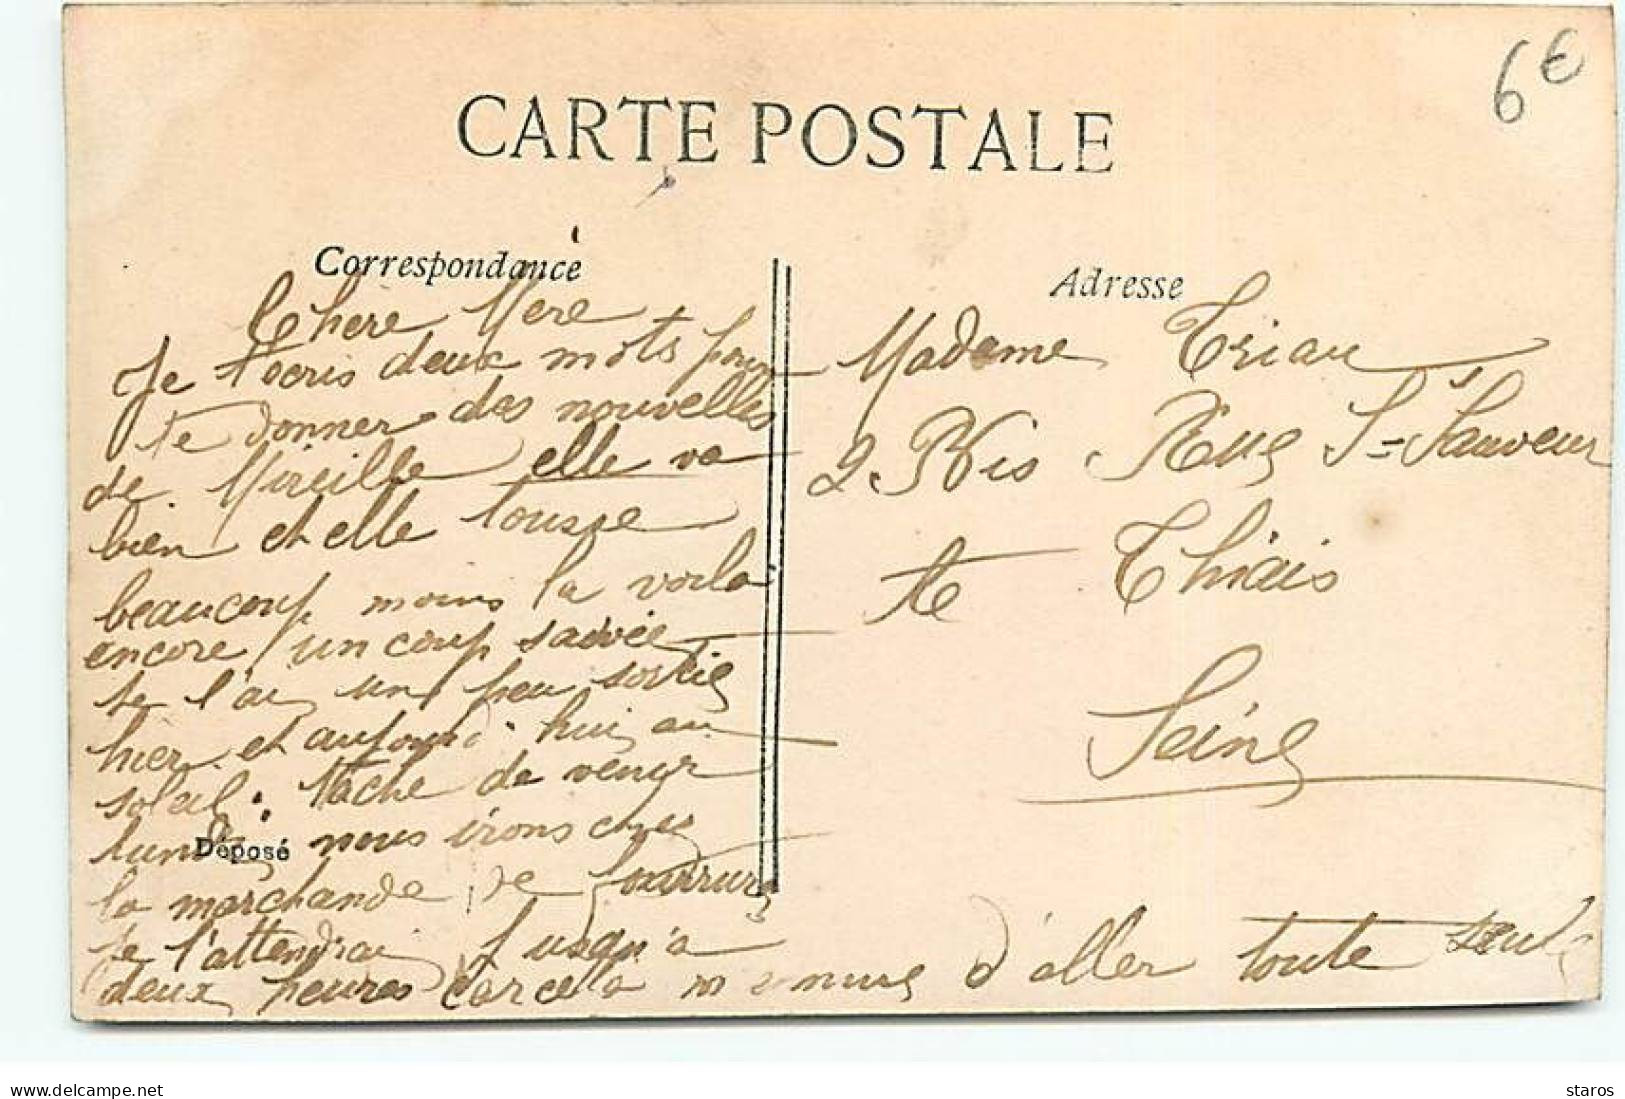 6€
CARTE POSTALE
Correspondance
Chère Mère
Je t'ecris deux mots pour
te donner des nouvelles
de Mireille elle va
bien et elle tousse
beaucoup moins la voila
encore un coup sauvée
je l'ai un peu sortie
hier et aujourd'hui au
soleil. tache de venir
lundi nous irons chez
la marchande de fourrure
je t'attendrai jusqu'a
deux heures car cela m'ennuie d'aller toute seule
Déposé
Adresse
Madame Triau
2 Bis Rue St Sauveur
te Thiais
Seine
delcampe.net
staros